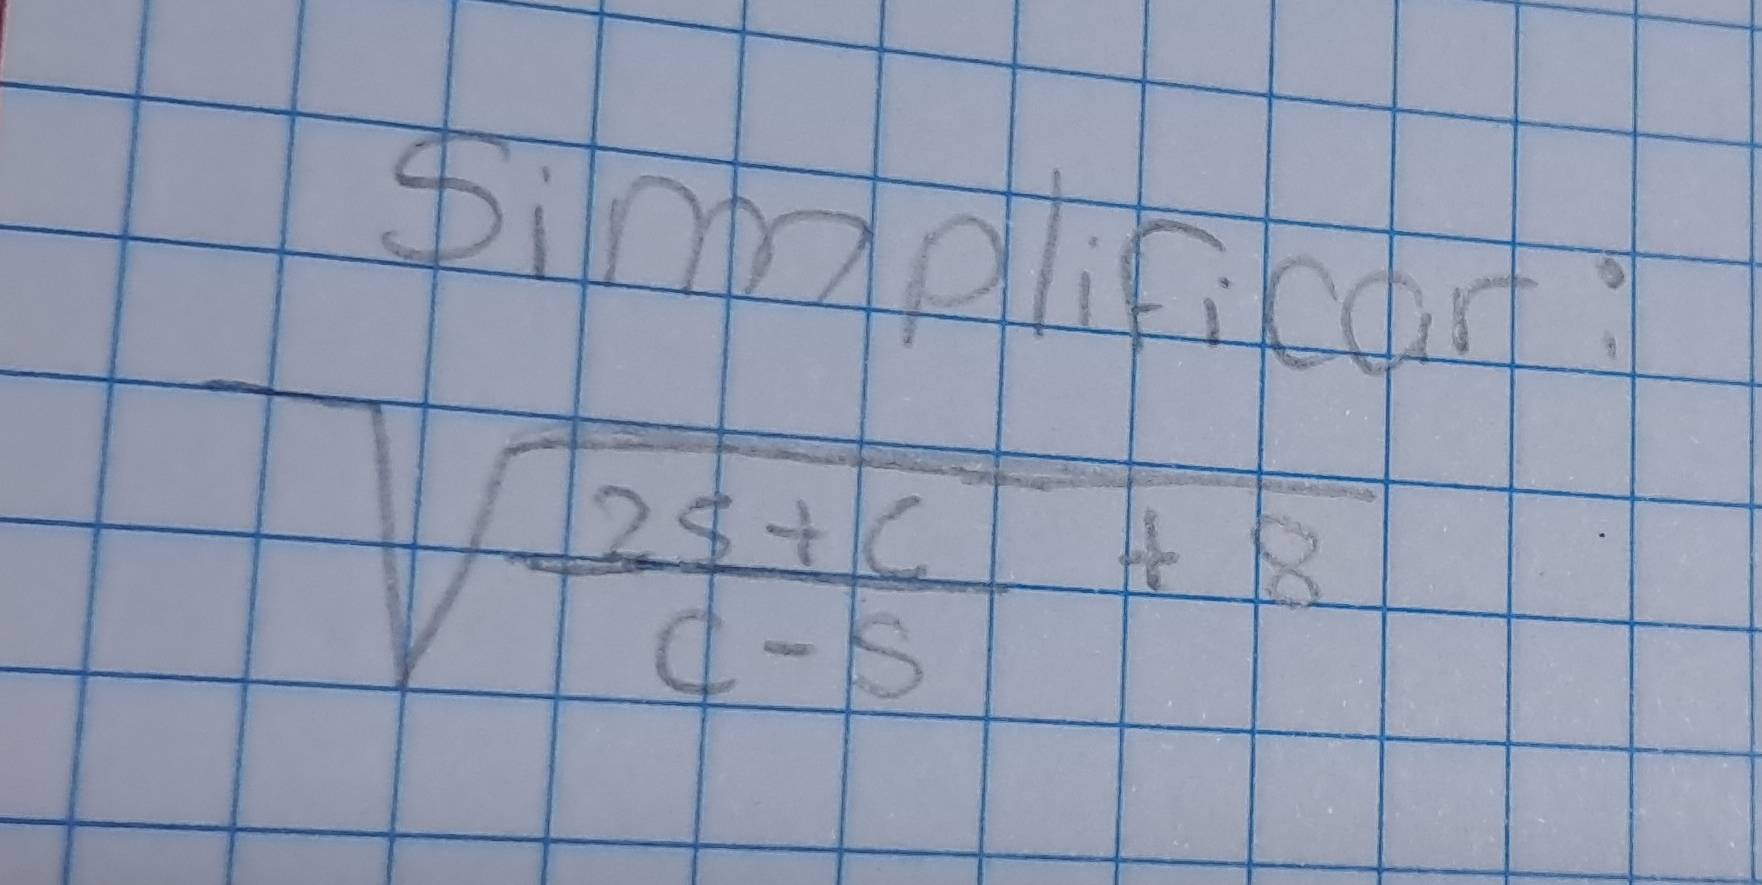 Simplificar:
√((2S+C)/(C-S) + 8)